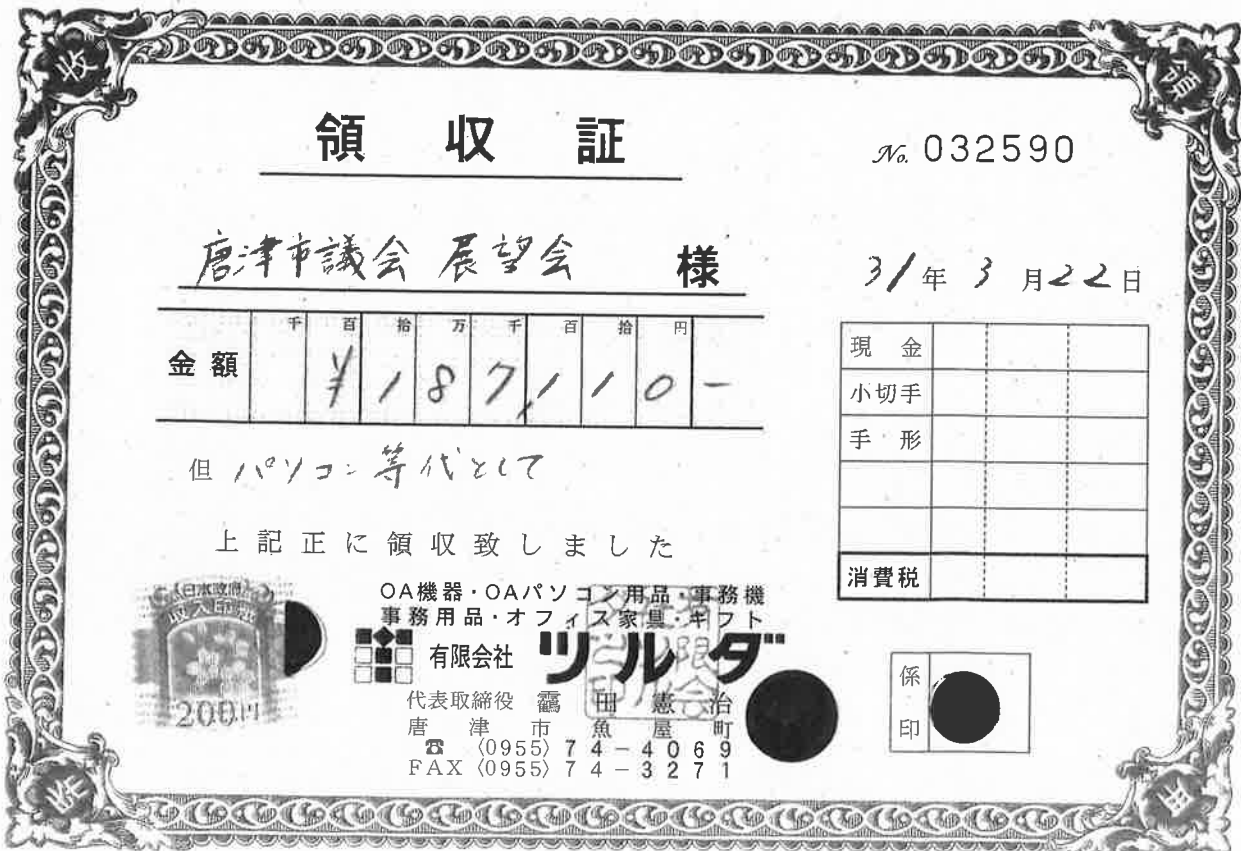 収
領
領収証
No. 032590
唐津市議会 展望会 様
31年3月22日
千 百 拾 万 千 百 拾 円
金額 ¥187,110-
但 パソコン等代として
上記正に領収致しました
現金
小切手
手形
消費税
日本政府
収入印紙
200円
OA機器・OAパソコン用品・事務機
事務用品・オフィス家具・ギフト
有限会社 ツルダ
代表取締役 靏田憲治
唐津市魚屋町
☎ (0955) 74-4069
FAX (0955) 74-3271
係印
証